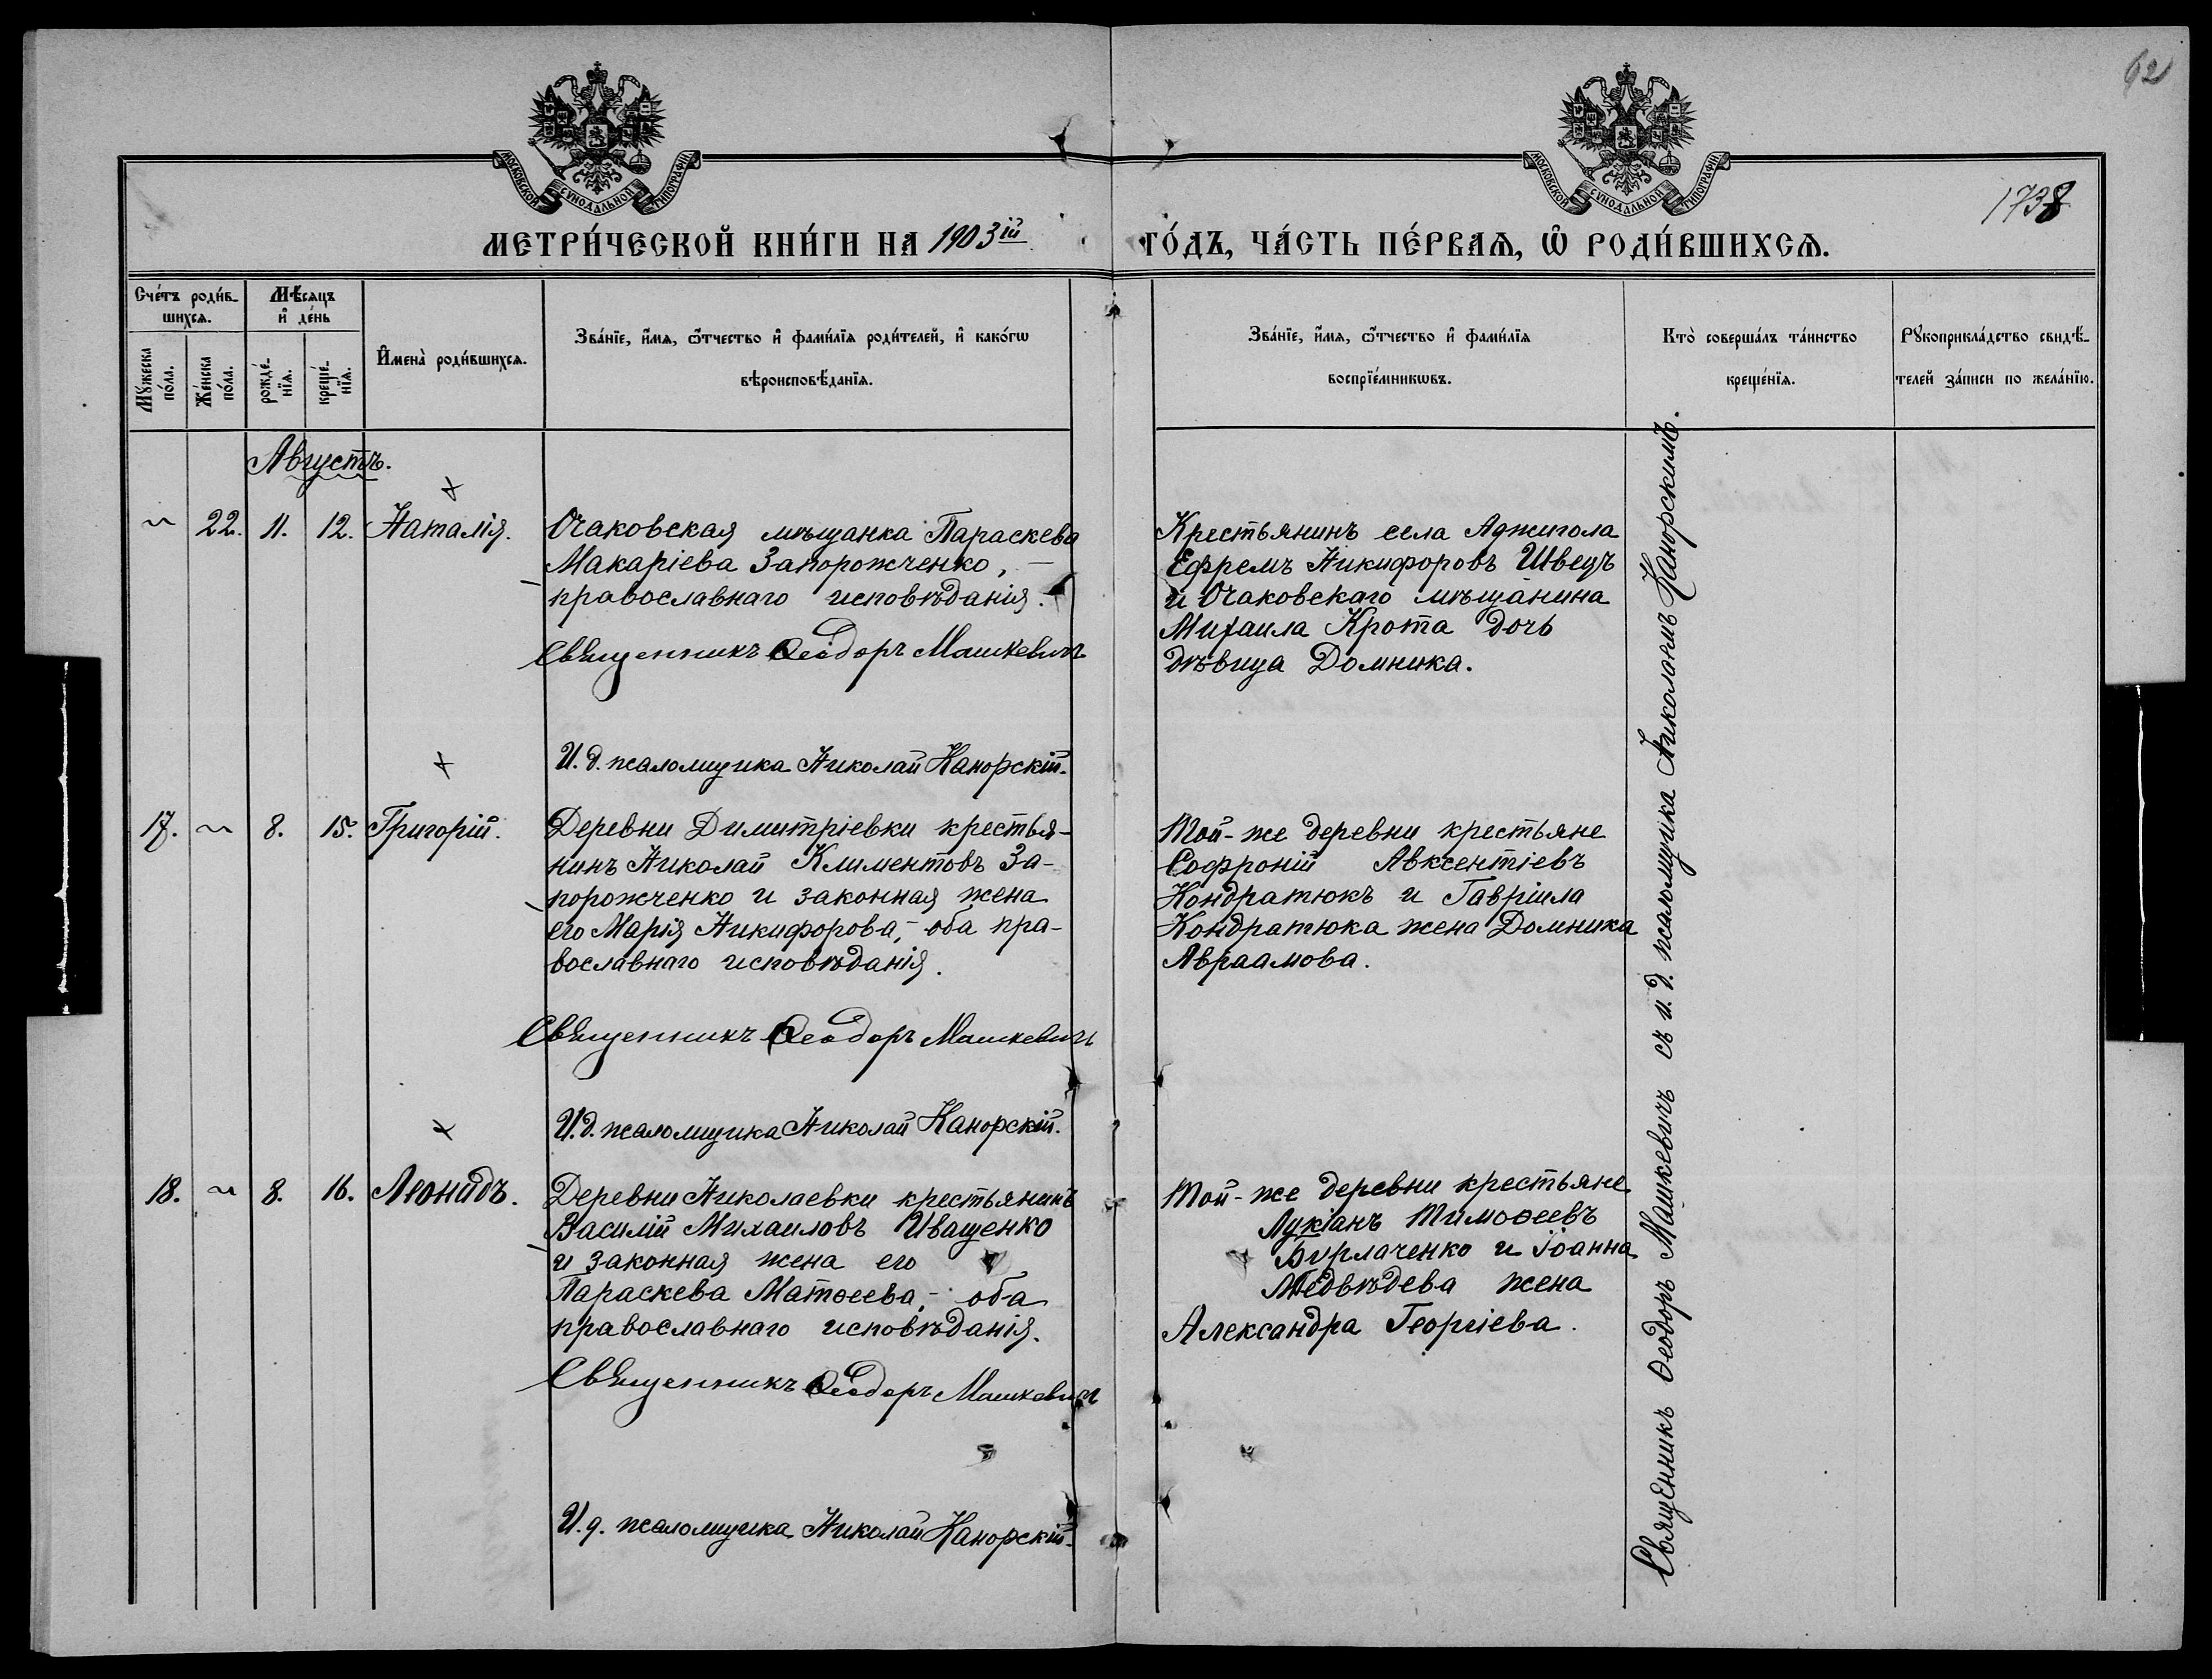 62
1738
МОСКОВСКОЙ СѴНОДАЛЬНОЙ ТИПОГРАФІИ
МОСКОВСКОЙ СѴНОДАЛЬНОЙ ТИПОГРАФІИ
МЕТРИ́ЧЕСКОЙ КНИ́ГИ НА 1903ій ГО́ДЪ, ЧА́СТЬ ПЕ́РВАЯ, Ѡ҆ РОДИ́ВШИХСЯ.
Сче́тъ роди́в-
шихся.
Мꙋ́жеска по́ла.
Же́нска по́ла.
Мѣ́сяцъ
и҆ де́нь
рожде́-
нїя.
креще́-
нїя.
И҆мена̀ роди́вшихся.
Зва́нїе, и҆́мя, ѻ҆́тчество и҆ фами́лїя роди́телей, и҆ како́гѡ
вѣроисповѣ́данїя.
Зва́нїе, и҆́мя, ѻ҆́тчество и҆ фами́лїя
воспрїе́мникѡвъ.
Кто̀ соверша́лъ та́инство
креще́нїя.
Рꙋкоприкла́дство свидѣ́-
телей за́писи по жела́нїю.
Августъ.
22. 11. 12. Наталія.
Очаковская мѣщанка Параскева
Макаріева Запорожченко, —
православнаго исповѣданія.
Священникъ Ѳеодоръ Машкевичъ
И. д. псаломщика Николай Канорскій.
Крестьянинъ села Аджигола
Ефремъ Никифоровъ Шведъ
и Очаковскаго мѣщанина
Михаила Крота дочь
дѣвица Домника.
17. 8. 15. Григорій.
Деревни Димитріевки крестья-
нинъ Николай Климентовъ За-
порожченко и законная жена
его Марія Никифорова, – оба пра-
вославнаго исповѣданія.
Священникъ Ѳеодоръ Машкевичъ
И. д. псаломщика Николай Канорскій.
Той-же деревни крестьяне
Софроній Авксентіевъ
Кондратюкъ и Гавріила
Кондратюка жена Домника
Авраамова.
18. 8. 16. Леонидъ.
Деревни Николаевки крестьянинъ
Василій Михаиловъ Иващенко
и законная жена его
Параскева Матѳеева, – оба
православнаго исповѣданія.
Священникъ Ѳеодоръ Машкевичъ
И. д. псаломщика Николай Канорскій.
Той-же деревни крестьяне
Лукіанъ Тимоѳеевъ
Бурлаченко и Іоанна
Медвѣдева жена
Александра Георгіева.
Священникъ Ѳеодоръ Машкевичъ съ и. д. псаломщика Николаемъ Канорскимъ.